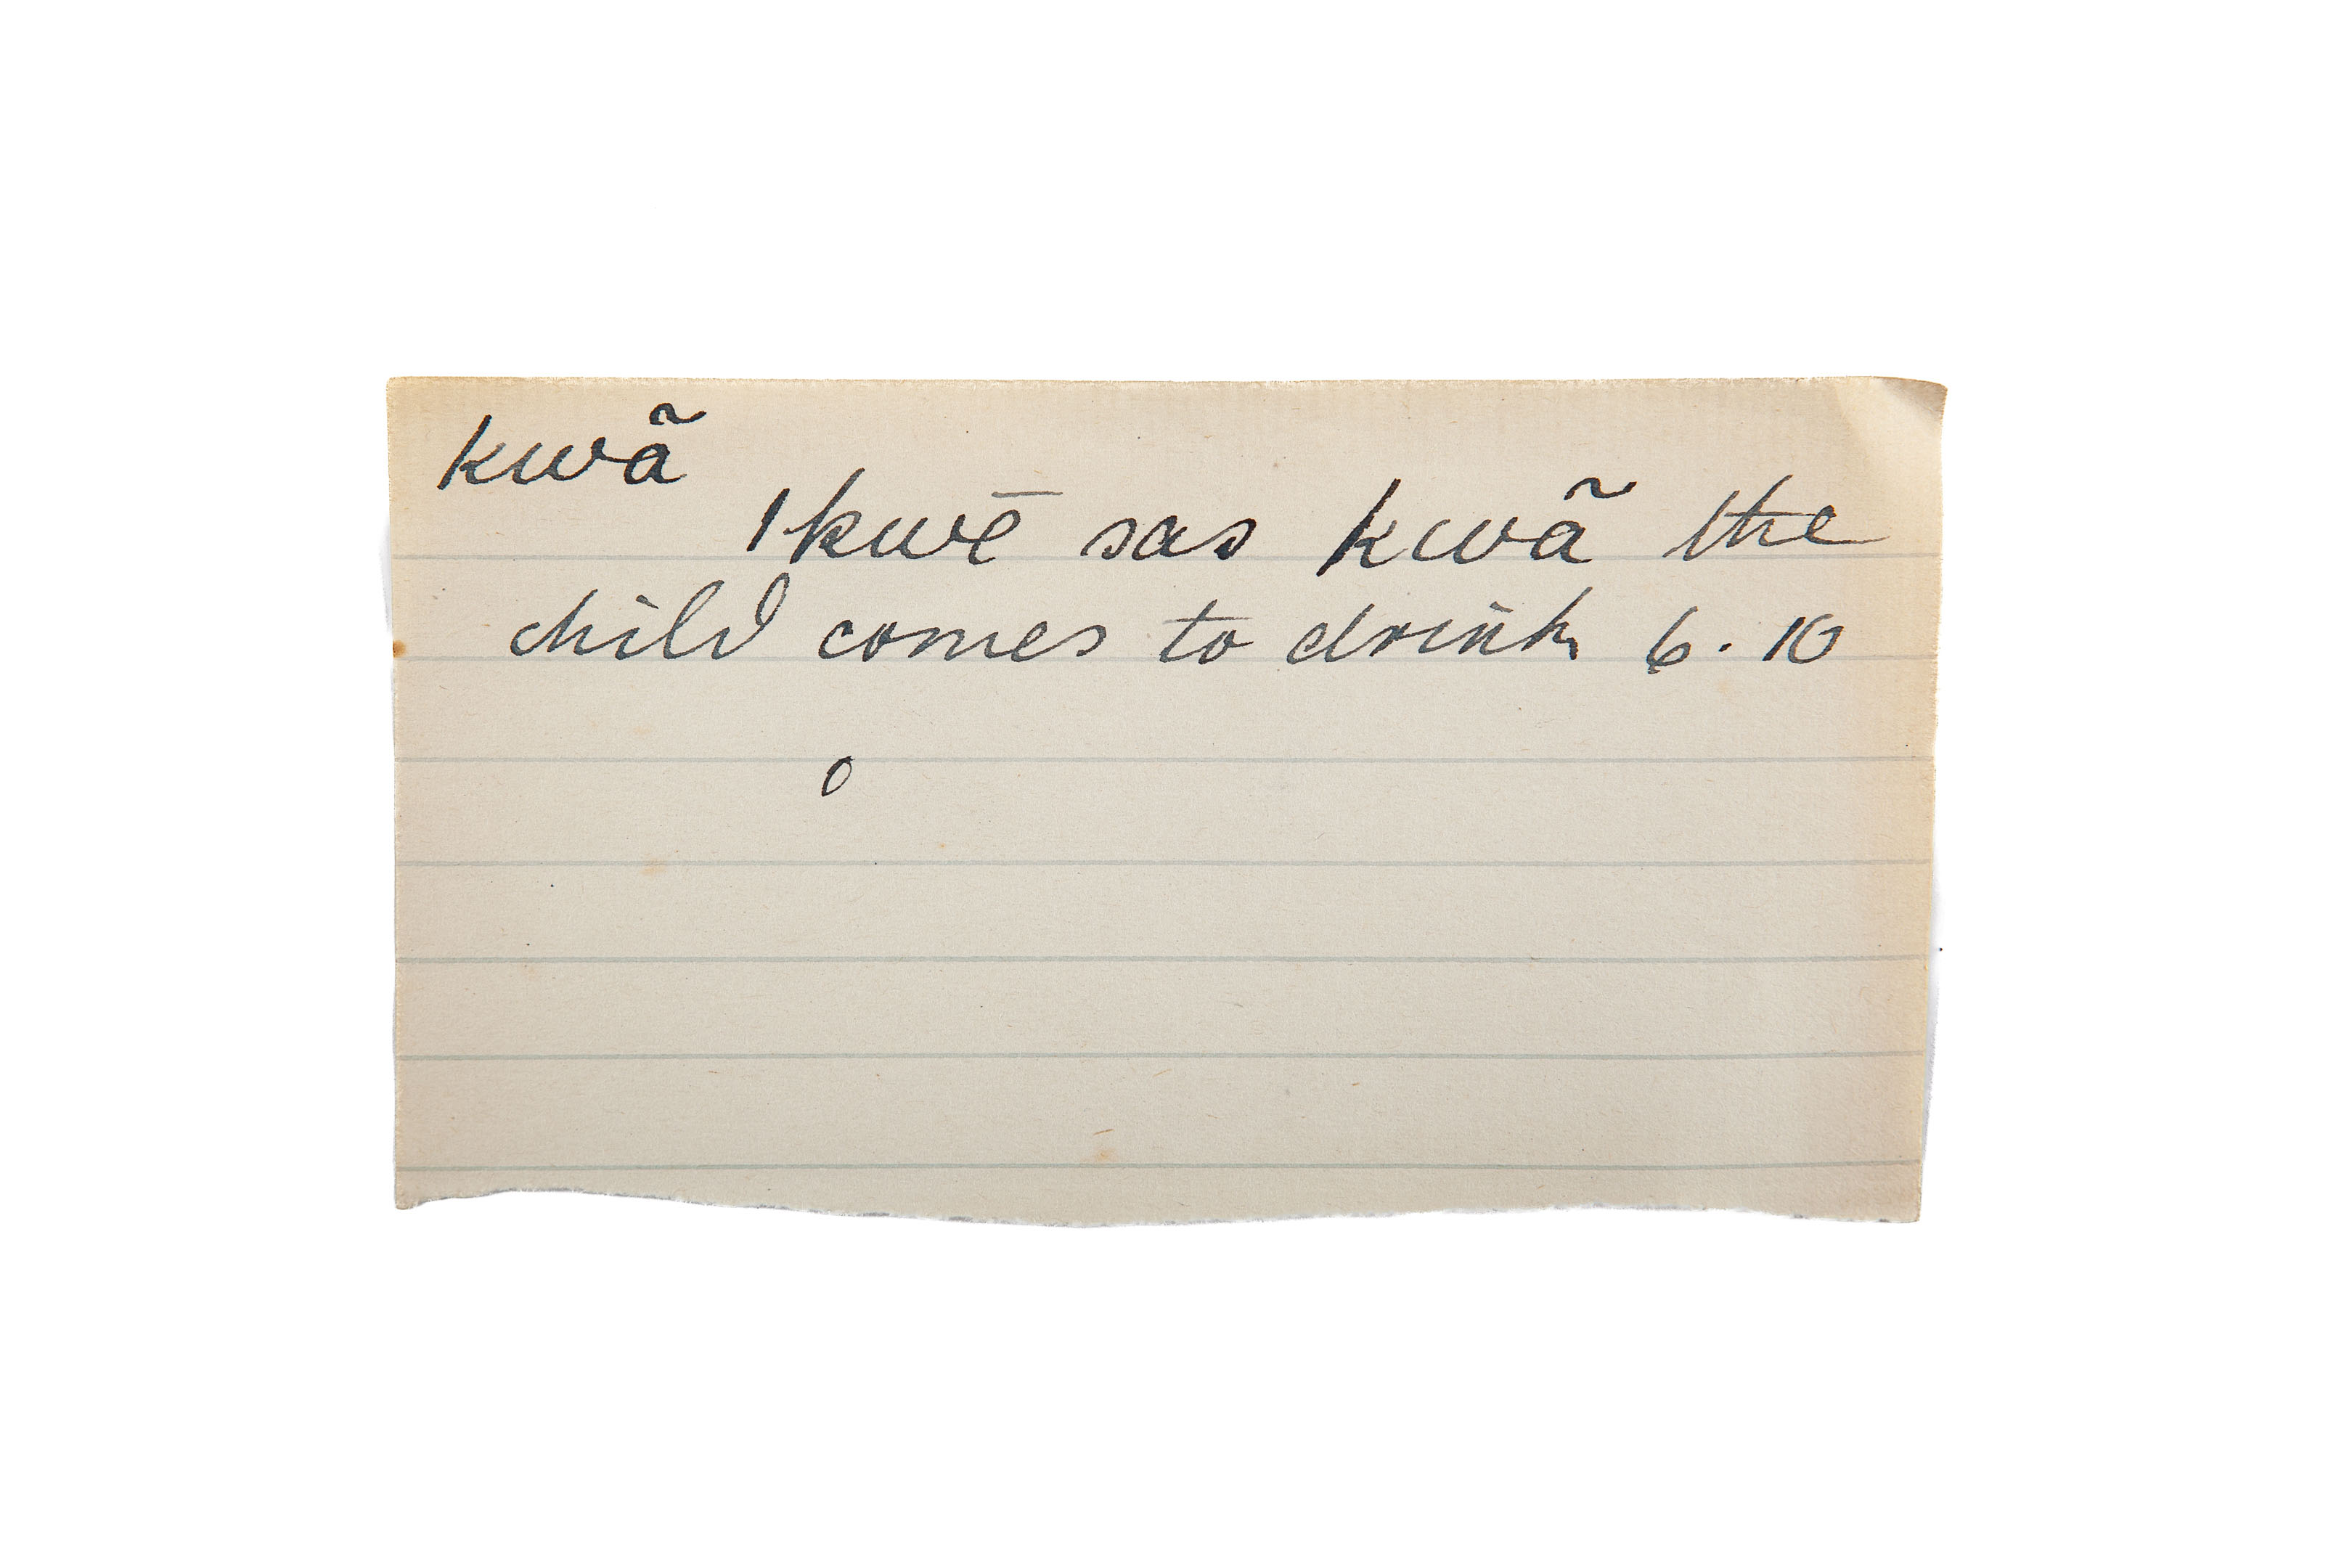 kwã
ǀkwē sas kwã the
child comes to drink 6. 10
o